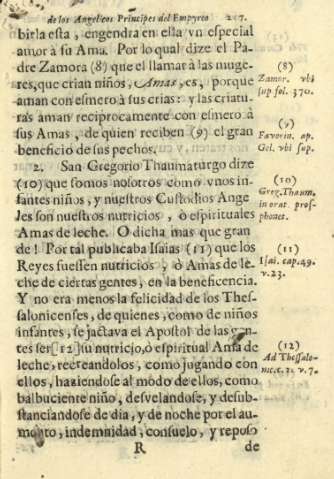 de los Angelicos Principes del Empyreo 217.
birla esta, engendra en ella vn especial
amor à su Ama. Por lo qual dize el Pa-
dre Zamora (8) que el llamar à las muge-
res, que crian niños, Amas, es, porque
aman con esmero à sus crias: y las criatu-
ras aman reciprocamente con esmero à
sus Amas, de quien reciben (9) el gran
beneficio de sus pechos.
2. San Gregorio Thaumaturgo dize
(10) que somos nosotros como vnos in-
fantes niños, y nuestros Custodios Ange
les son nuestros nutricios, ò espirituales
Amas de leche. O dicha mas que gran
de! Por tal publicaba Isaias (11) que los
Reyes fuessen nutricios, ò Amas de le-
che de ciertas gentes, en la beneficencia.
Y no era menos la felicidad de los Thes-
salonicenses, de quienes, como de niños
infantes, se jactava el Apostol de las gen-
tes ser [12] su nutricio, ò espiritual Ama de
leche, recreandolos, como jugando con
ellos, haziendose al modo de ellos, como
balbuciente niño, desvelandose, y desub-
stanciandose de dia, y de noche por el au-
mento, indemnidad, consuelo, y reposo
R de
(8)
Zamor. vbi
sup fol. 370.
(9)
Favorin. ap.
Gel. vbi sup.
(10)
Greg. Thaum,
in orat pros-
phonet.
(11)
Isai. cap. 49.
v. 23.
(12)
Ad Thessalo-
nic. c. 2. v. 7.